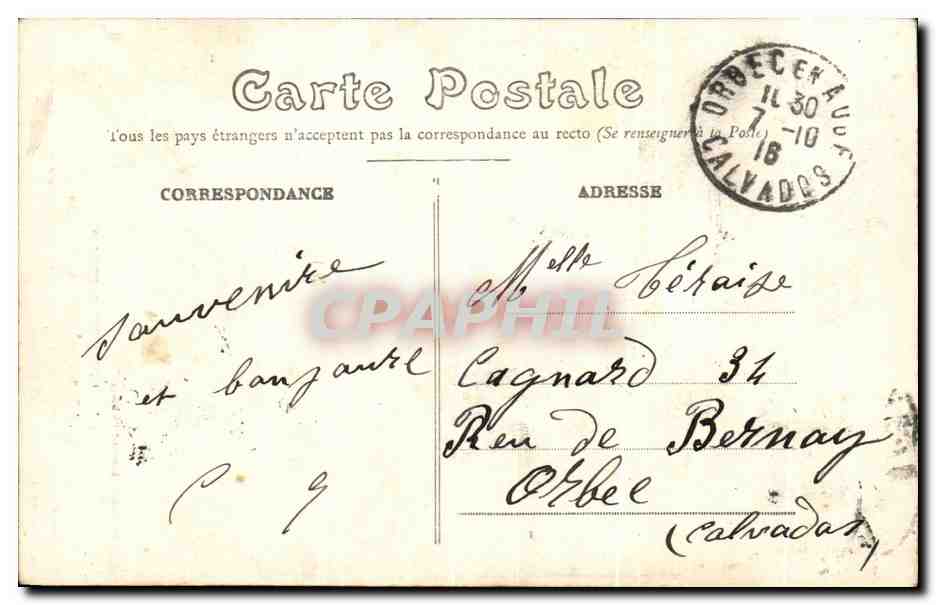 Carte Postale
Tous les pays étrangers n'acceptent pas la correspondance au recto (Se renseigner à la Poste)
CORRESPONDANCE
souvenire
et bonjoure
C G
ADRESSE
Melle Téraise
Cagnard 34
Reu de Bernay
Orbec
(Calvados)
ORBEC EN AUGE
11 30
7 -10
16
CALVADOS
CPAPHIL